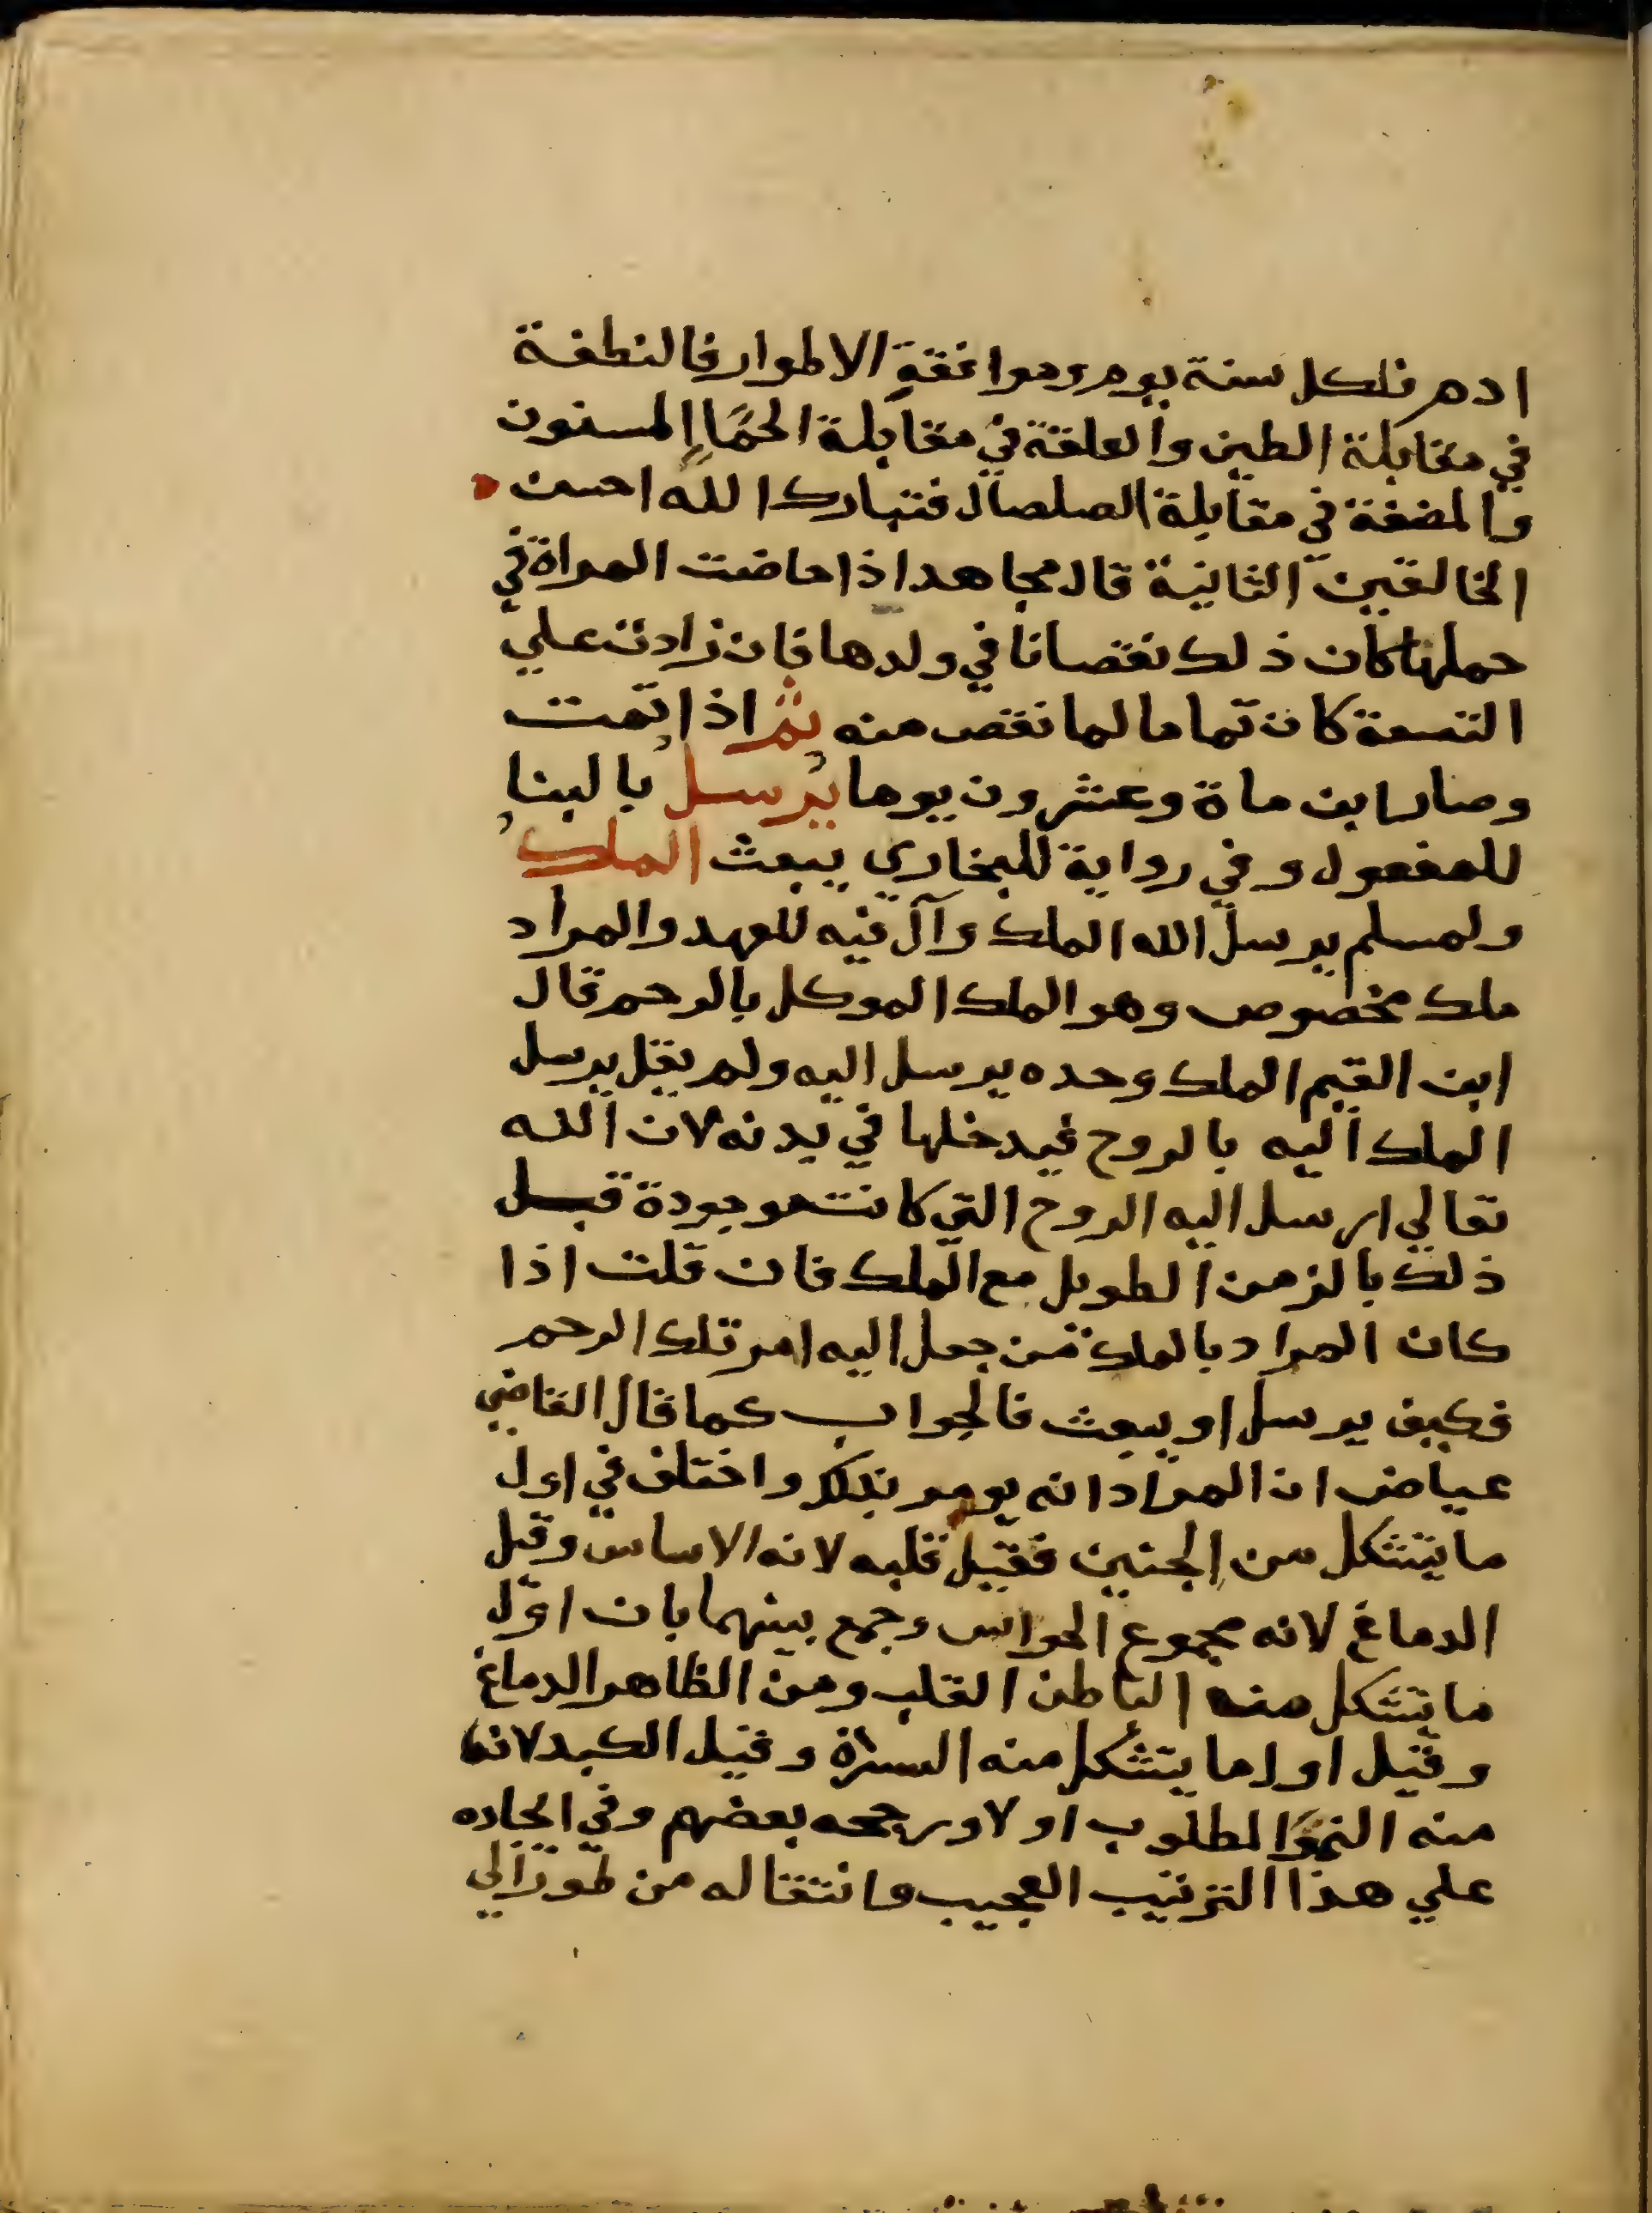 ادم فلكل سنة يوم وموافقة الاطوار فالنطفة
في مقابلة الطين والعلقة في مقابلة الحمإ المسنون
والمضغة في مقابلة الصلصال فتبارك الله احسن
الخالقين الثانية قال مجاهد اذا حاضت المراة في
حملها كان ذلك نقصانا في ولدها فان زادت علي
التسعة كان تماما لما نقص منه ثم اذا تمت
وصار ابن ماة وعشرون يوما يُرسل بالبنا
للمفعول وفي رواية للبخاري يبعث الملكُ
ولمسلم يرسل الله الملك وآل فيه للعهد والمراد
ملك مخصوص وهو الملك الموكل بالرحم قال
ابن القيم الملك وحده يرسل اليه ولم يقل يرسل
الملك اليه بالروح فيدخلها في بدنه لان الله
تعالي ارسل اليه الروح التي كانت موجودة قبل
ذلك بالزمن الطويل مع الملك فان قلت اذا
كان المراد بالملك من جعل اليه امر تلك الرحم
فكيف يرسل او يبعث فالجواب كما قال القاضي
عياض ان المراد انه يومر بذلك واختلف في اول
ما يتشكل من الجنين فقيل قلبه لانه الاساس وقيل
الدماغ لانه مجموع الحواس وجمع بينهما بان اول
ما يتشكل منه الباطن القلب ومن الظاهر الدماغ
وقيل اول ما يتشكل منه السرة وقيل الكبد لانه
منه النموّ المطلوب اولا ورجحه بعضهم وفي ايجاده
علي هذا الترتيب العجيب وانتقاله من طور الي